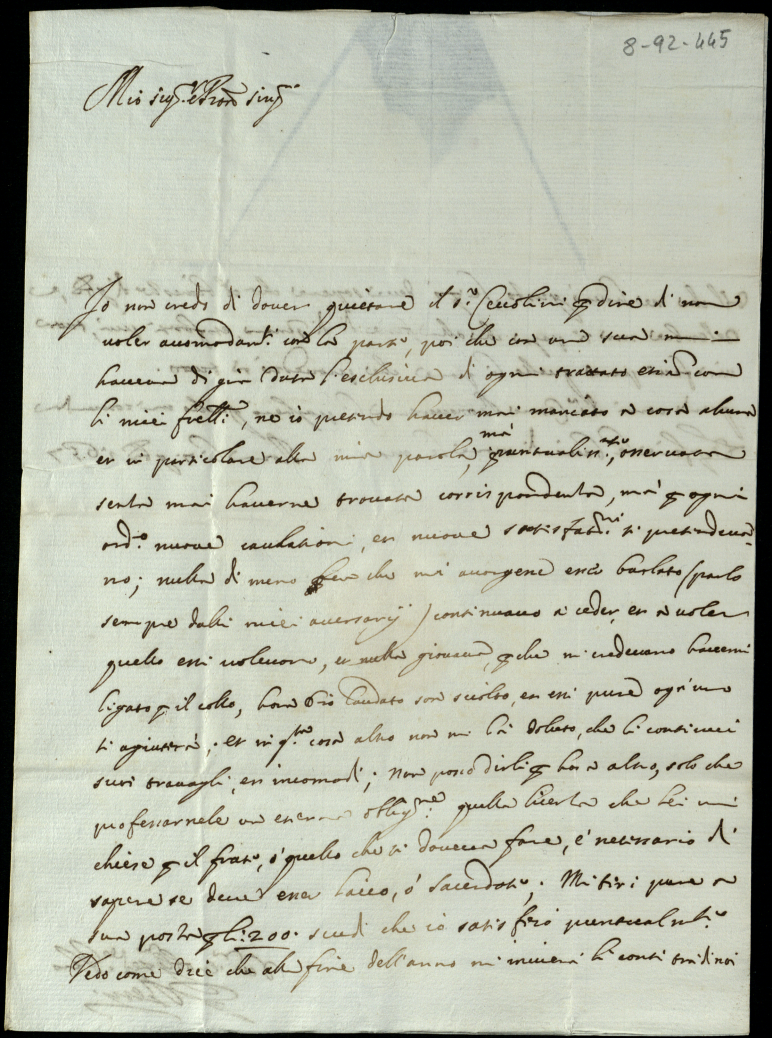 8-92-445
Mio sig.r e Pron sing.
Io non credo di dover quietare il s.r Cecolini p dire di non
voler accomodanti con la parte, poi che con una sua
haveva di già data l'esclusiva di ogni trattato et con
li miei fretti, ne io pretendo haver mai mancato a cosa alcuna
et in particolare alla mia parola, mà puntualiss.te osservata
senza mai haverne trovata corrispondenza, mà p ogni
ord.o nuove cautationi, et nuove satisfat.ni si pretendeva
no; nulla di meno che mi accorgeva esser burlato (parlo
sempre dalli miei aversarij) continuavo à ceder, et a voler
quello essi volevano, et nulla giovava, p che mi credevano havermi
ligato p il collo, hora Dio laudato son sciolto, et essi pure ogn'uno
si agiuterà. et in q.ta cosa altro non mi hà doluto, che li continui
suoi travagli, et incomodi; Non posso dirli p hora altro, solo che
professarnele una eterna oblig.ne quella licenza che lei mi
chiese p il frate, ò quello che si doveva fare, è necessario di
sapere se deve esser laico, ò sacerdote. Mi tiri pure a
sua posta p li 200. scudi che io satisfarò puntualm.te
Vedo come dice che alla fine dell'anno mi invierà li conti trà di noi